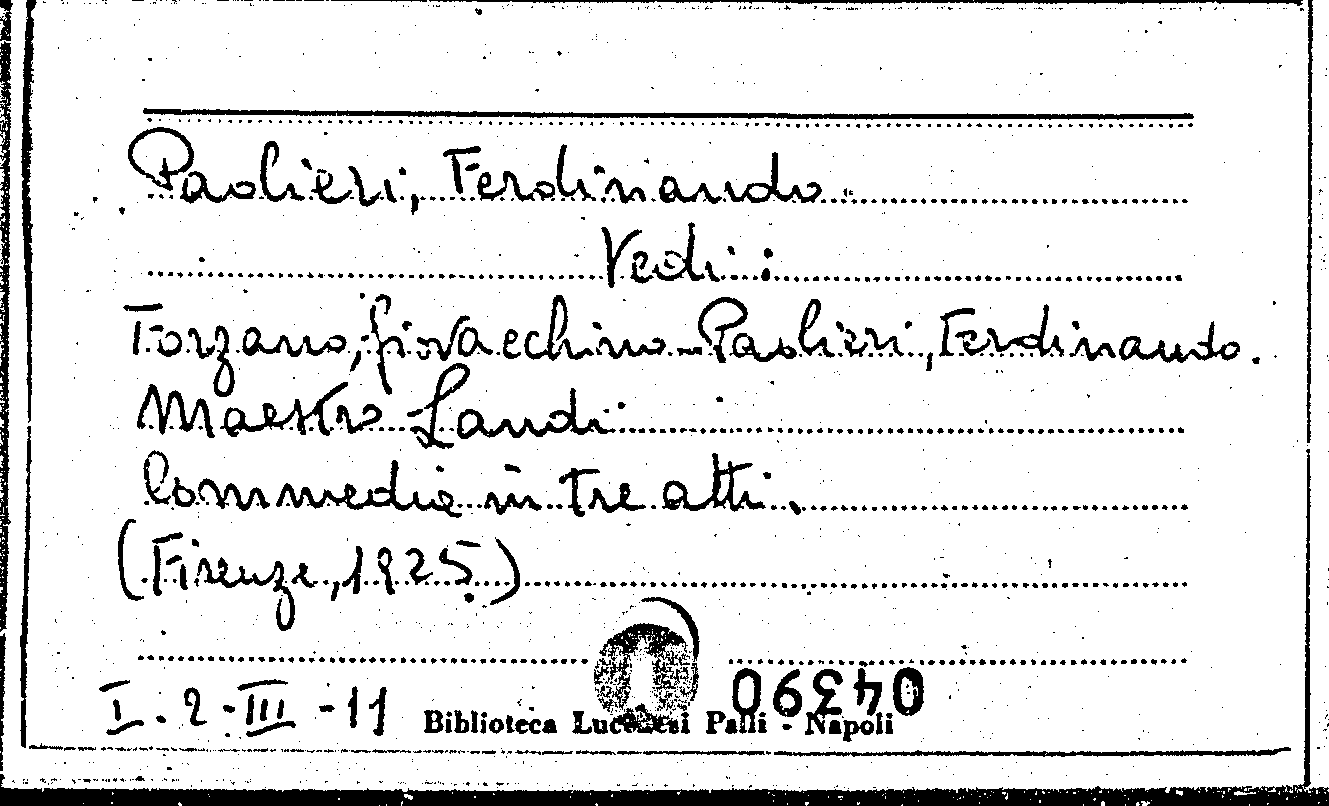 Paolieri, Ferdinando
Vedi:
Forzano, Giovacchino - Paolieri, Ferdinando.
Maestro Landi
Commedia in tre atti.
(Firenze, 1925.)
04390
I. 2 - III - 11 Biblioteca Lucchesi Palli - Napoli